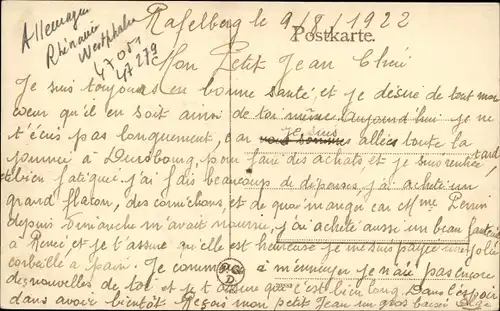 Allemagne
Rhénanie
Westphalie
47051
47279
Rafelberg le 9/8/1922
Postkarte.
Mon Petit Jean Chéri
Je suis toujours en bonne santé et je désire de tout mon
coeur qu'il en soit ainsi de toi même. Aujourd'hui je ne
t'écris pas longuement, car je suis allée toute la
journée à Duisbourg, pour faire des achats et je suis rentrée tard
et bien fatiguée j'ai fais beaucoup de dépenses, j'ai acheté un
grand flacon, des cornichons, et de quoi manger car Mme Perrin
depuis Dimanche m'avait nourrie, j'ai acheté aussi un beau fauteuil
à Renée et je t'assure qu'elle est heureuse je me suis payée une jolie
corbeille à pain. Je commence à m'ennuyer je n'ai pas encore
des nouvelles de toi et je t'assure que c'est bien long. Dans l'espoir
d'en avoir bientôt Reçois mon petit Jean un gros baiser